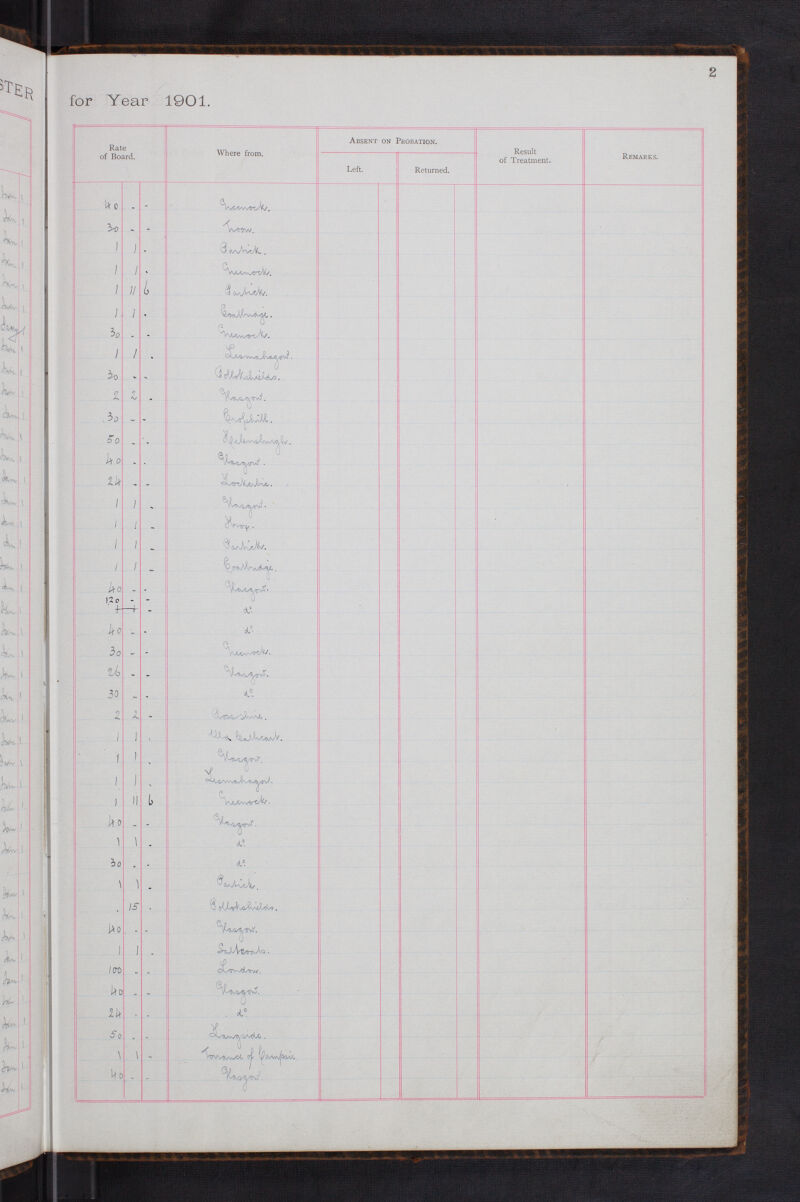 2
STER
for Year 1901.
Rate of Board. Where from. Absent on Probation. Left. Returned. Result of Treatment. Remarks.
40 - - Greenock.
30 - - Troon.
1 1 - Partick.
1 1 - Greenock.
1 11 6 Partick.
1 1 - Coatbridge.
30 - - Greenock.
1 1 - Lesmahagow.
30 - - Pollokshields.
2 2 - Glasgow.
30 - - Crosshill.
50 - - Helensburgh.
40 - - Glasgow.
24 - - Lockerbie.
1 1 - Glasgow.
1 1 -
1 1 - Partick.
1 1 - Coatbridge.
40 - - Glasgow.
120 - -
1 1 - do
40 - - do
30 - - Greenock.
26 - - Glasgow.
30 - - do
2 2 - Ross-shire.
1 1 - Cathcart.
1 1 - Glasgow.
1 1 - Lesmahagow.
1 11 6 Greenock.
40 - - Glasgow.
1 1 - do
30 - - do
1 1 - Partick.
- 15 - Pollokshields.
40 - - Glasgow.
1 1 - Saltcoats.
100 - - London.
40 - - Glasgow.
24 - - do
50 - - Langside.
1 1 - Torrance of Campsie.
40 - - Glasgow.